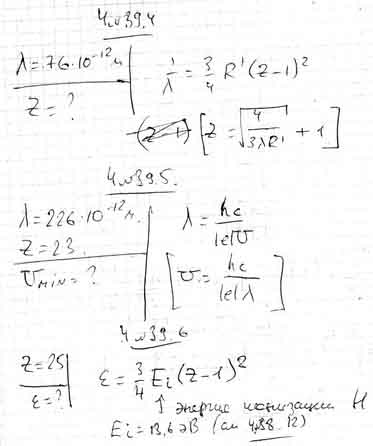 4.039.4
λ = 76·10⁻¹² м
Z = ?
1/λ = 3/4 R' (Z-1)²
[Z = √(4/(3λR')) + 1]
4.039.5.
λ = 226·10⁻¹² м.
Z = 23.
U min = ?
λ = hc/(|e|U)
[U = hc/(|e|λ)]
4.039.6
Z = 25
ε = ?
ε = 3/4 Ei (Z-1)²
↑ энергия ионизации H
Ei = 13,6 эВ (см 4.38.12)